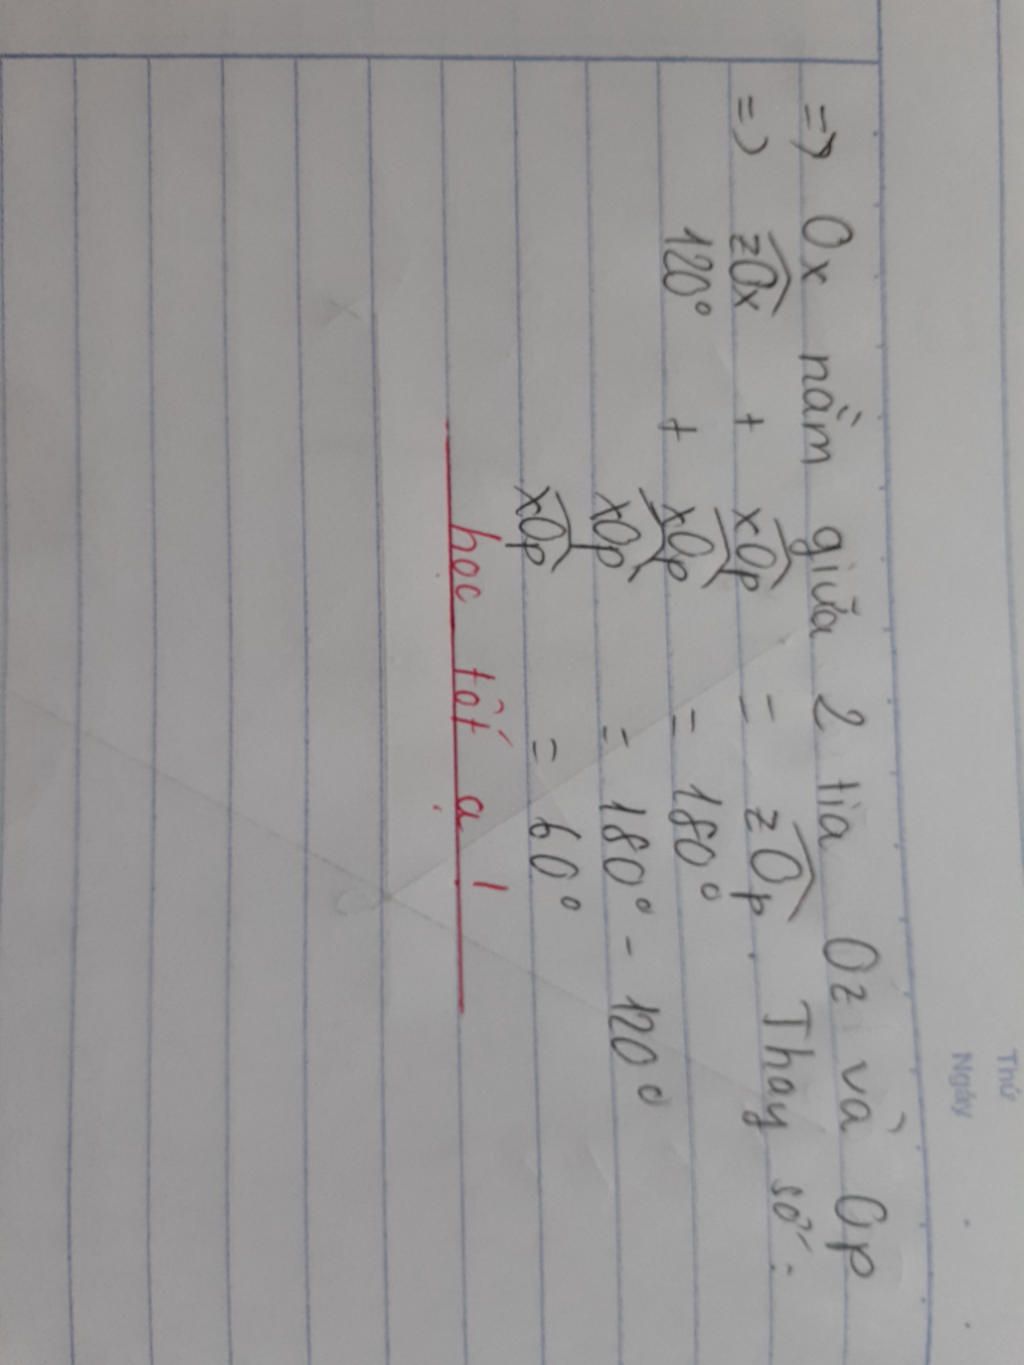 Thứ
Ngày
=> Ox nằm giữa 2 tia Oz và Op
=> zOx + xOp = zOp. Thay số:
120° + xOp = 180°
xOp = 180° - 120°
xOp = 60°
học tốt ạ!